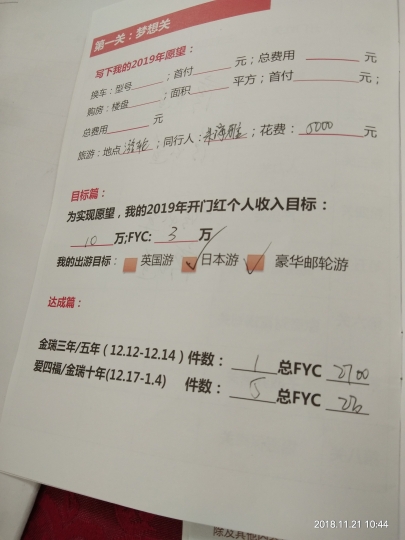 第一关：梦想关
写下我的2019年愿望：
换车：型号______；首付______元；总费用______元
购房：楼盘______；面积______平方；首付______元；
总费用______元
旅游：地点 游轮；同行人：；花费：5000 元
目标篇：
为实现愿望，我的2019年开门红个人收入目标：
10 万;FYC: 3 万
我的出游目标： 英国游 ✓日本游 ✓豪华邮轮游
达成篇：
金瑞三年/五年（12.12-12.14）件数： 1 总FYC 2700
爱四福/金瑞十年(12.17-1.4) 件数： 5 总FYC
2018.11.21 10:44